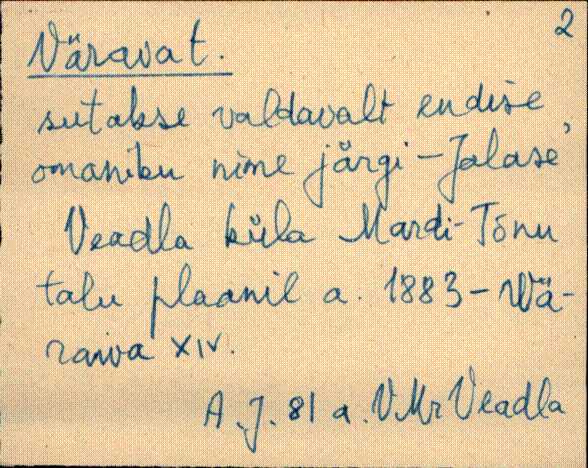 2
Väravat.
sutakse valdavalt endise
omaniku nime järgi – Jalase,
Veadla küla Mardi-Tõnu
talu plaanil a. 1883 – Wä-
rawa XIV.
A. J. 81 a. VMr Veadla